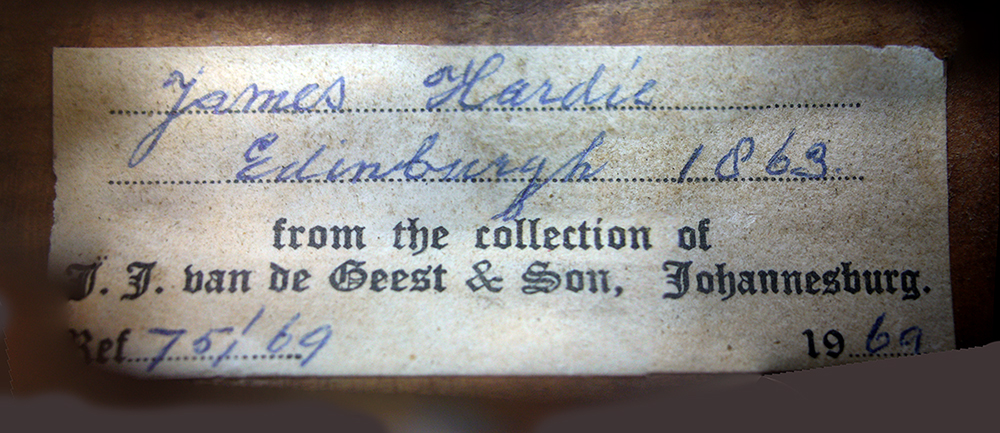 James Hardie
Edinburgh 1863.
from the collection of
J. J. van de Geest & Son, Johannesburg.
Ref. 75/69 1969